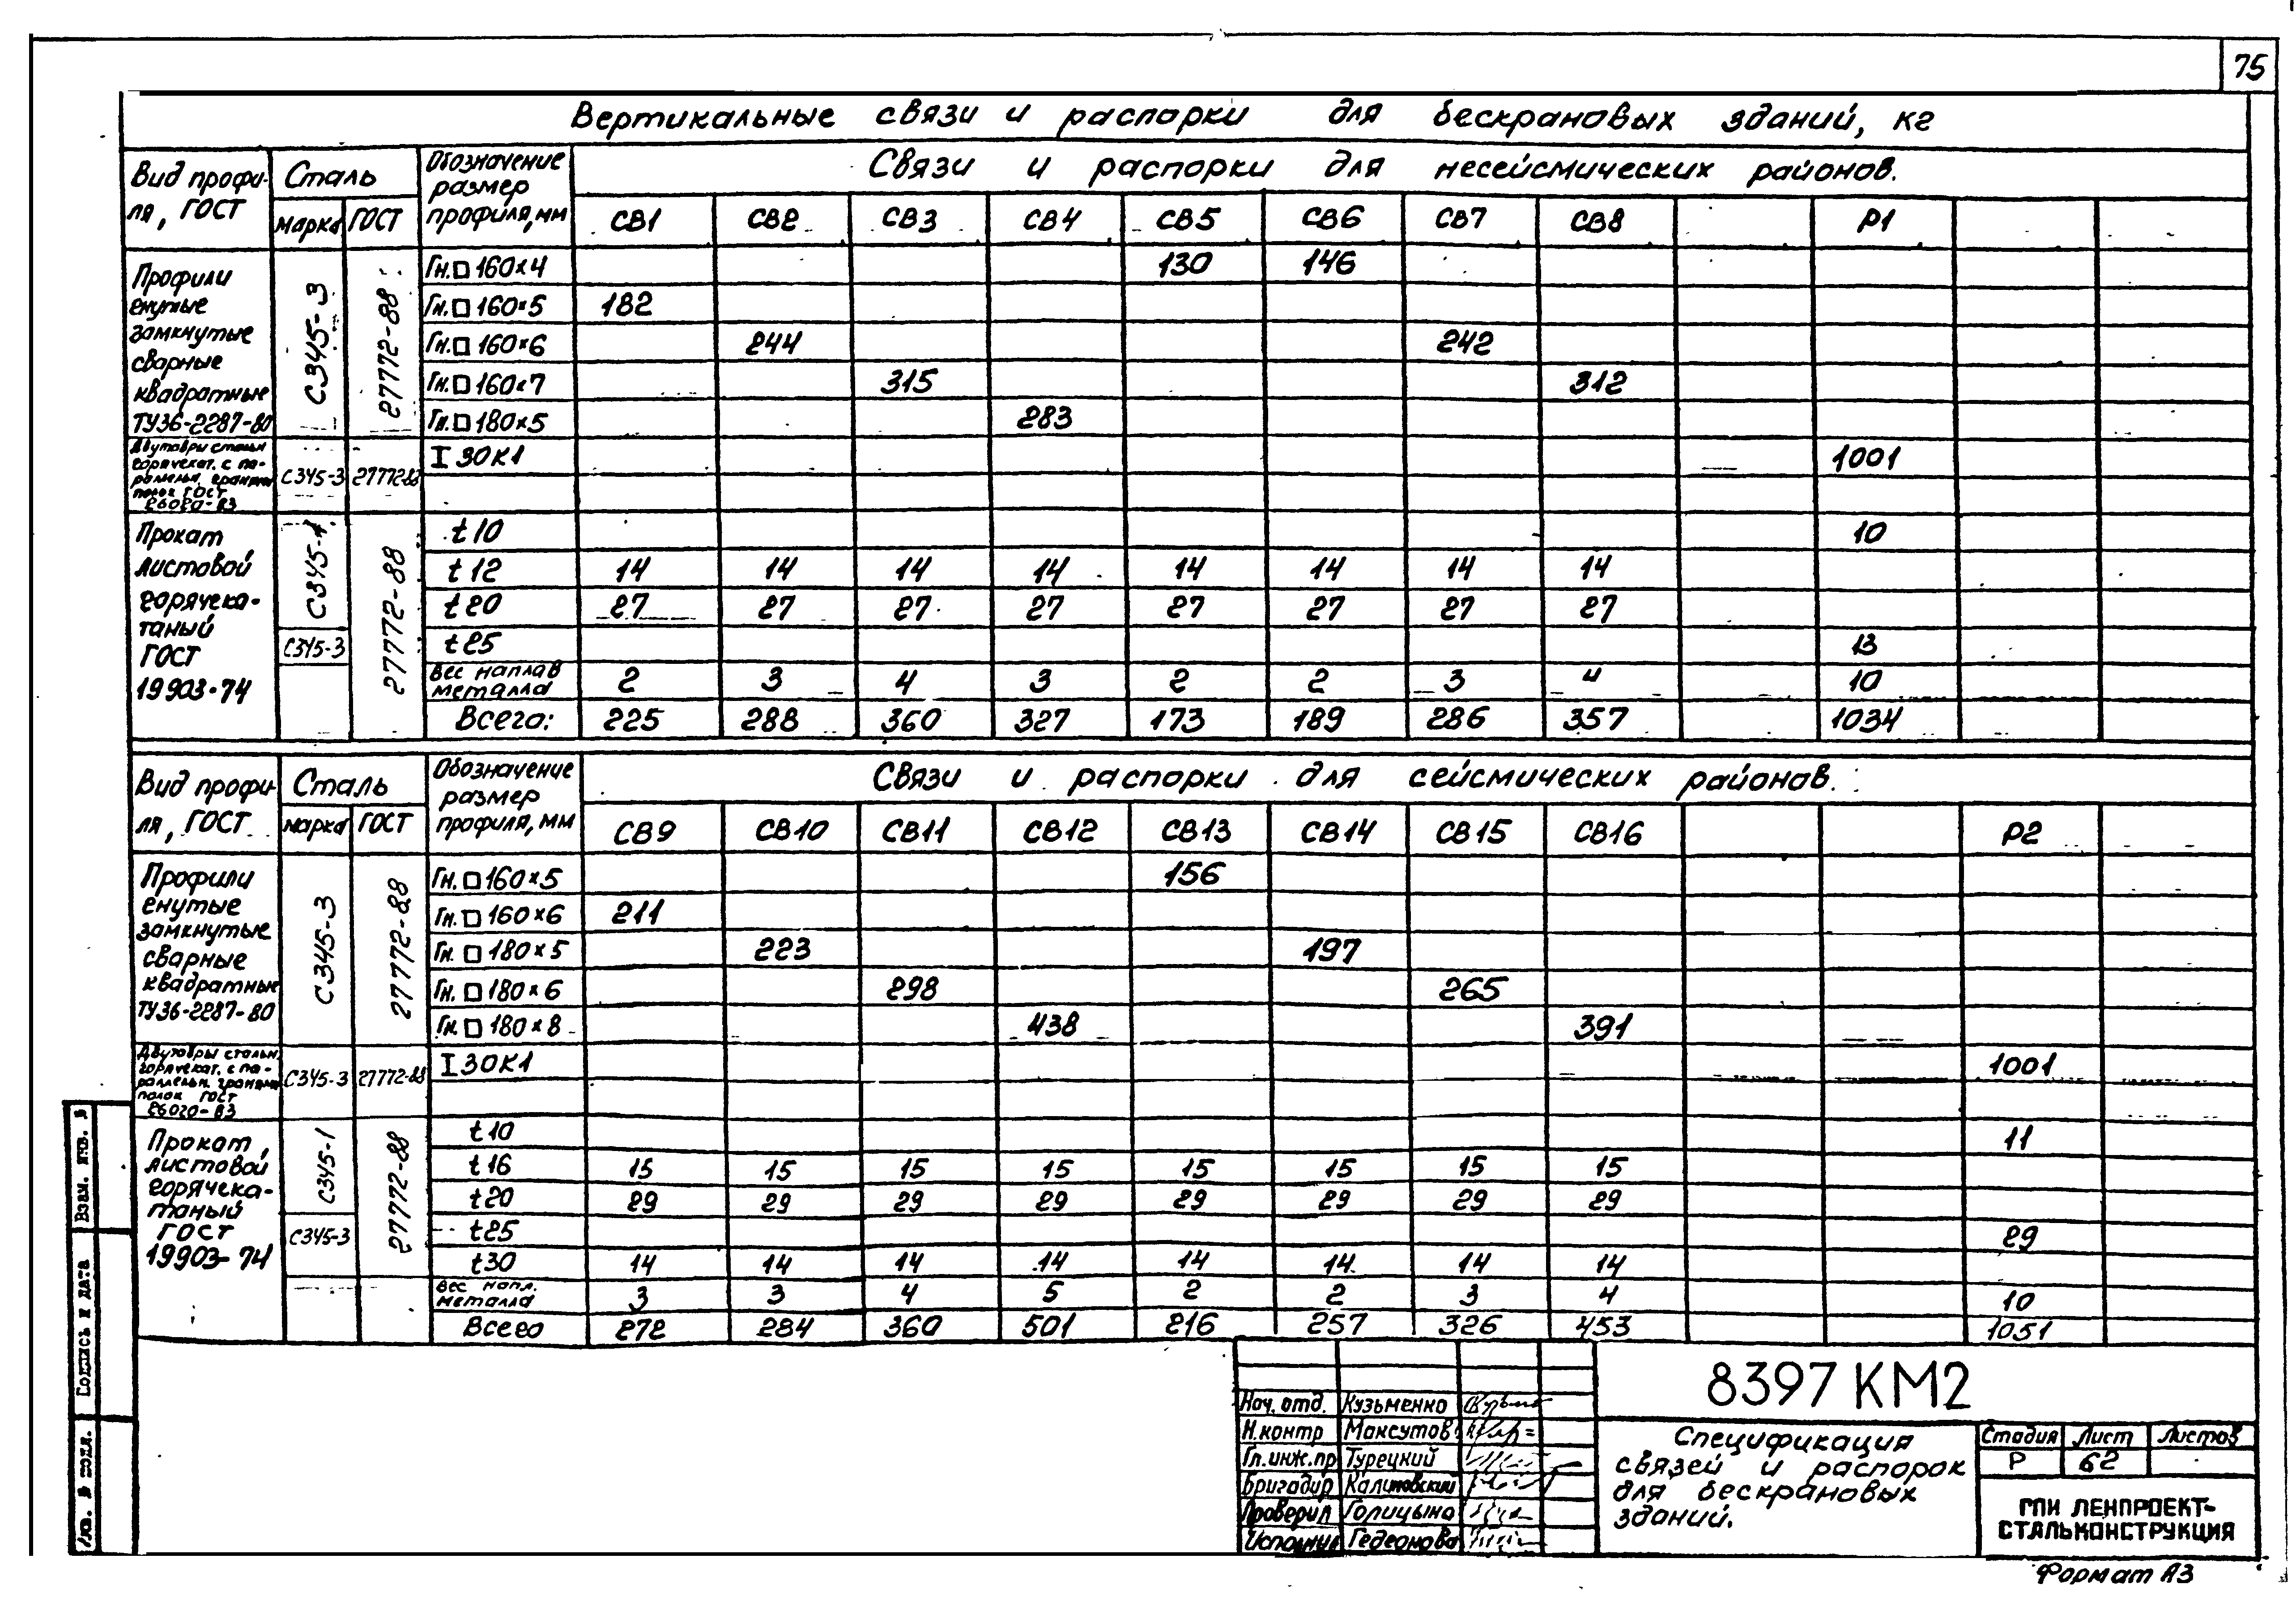 75
Вертикальные связи и распорки для бескрановых зданий, кг
Вид профи- Сталь Обозначение Связи и распорки для несейсмических районов.
ля, ГОСТ марка ГОСТ размер профиля, мм СВ1 СВ2 СВ3 СВ4 СВ5 СВ6 СВ7 СВ8 Р1
Профили гнутые замкнутые сварные квадратные ТУ36-2287-80 С345-3 27772-88
Гн.□160×4 130 146
Гн.□160×5 182
Гн.□160×6 244 242
Гн.□160×7 315 312
Гн.□180×5 283
Двутавры стальн горячекат. с па-раллельн. гранями полок ГОСТ 26020-83 С345-3 27772-88 I 30К1 1001
Прокат листовой горячека-таный ГОСТ 19903-74 С345-1 С345-3 27772-88
t10 10
t12 14 14 14 14 14 14 14 14
t20 27 27 27 27 27 27 27 27
t25 13
Вес наплав металла 2 3 4 3 2 2 3 4 10
Всего: 225 288 360 327 173 189 286 357 1034
Вид профи- Сталь Обозначение Связи и распорки для сейсмических районов.
ля, ГОСТ марка ГОСТ размер профиля, мм СВ9 СВ10 СВ11 СВ12 СВ13 СВ14 СВ15 СВ16 Р2
Профили гнутые замкнутые сварные квадратные ТУ36-2287-80 С345-3 27772-88
Гн.□160×5 156
Гн.□160×6 211
Гн.□180×5 223 197
Гн.□180×6 298 265
Гн.□180×8 438 391
Двутавры стальн. горячекат. с па-раллельн. гранями полок ГОСТ 26020-83 С345-3 27772-88 I 30К1 1001
Прокат листовой горячека-таный ГОСТ 19903-74 С345-1 С345-3 27772-88
t10 11
t16 15 15 15 15 15 15 15 15
t20 29 29 29 29 29 29 29 29
t25 29
t30 14 14 14 14 14 14 14 14
Вес напл. металла 3 3 4 5 2 2 3 4 10
Всего 272 284 360 501 216 257 326 453 1051
8397 КМ2
Нач. отд. Кузьменко
Н.контр Максутов
Гл.инж.пр Турецкий
Бригадир Калиновский
Проверил Голицына
Исполнил Гедеонова
Спецификация
связей и распорок
для бескрановых
зданий.
Стадия Лист Листов
Р 62
ГПИ ЛЕНПРОЕКТ-
СТАЛЬКОНСТРУКЦИЯ
Формат А3
Взам. инв. №
Подпись и дата
Инв. № подл.